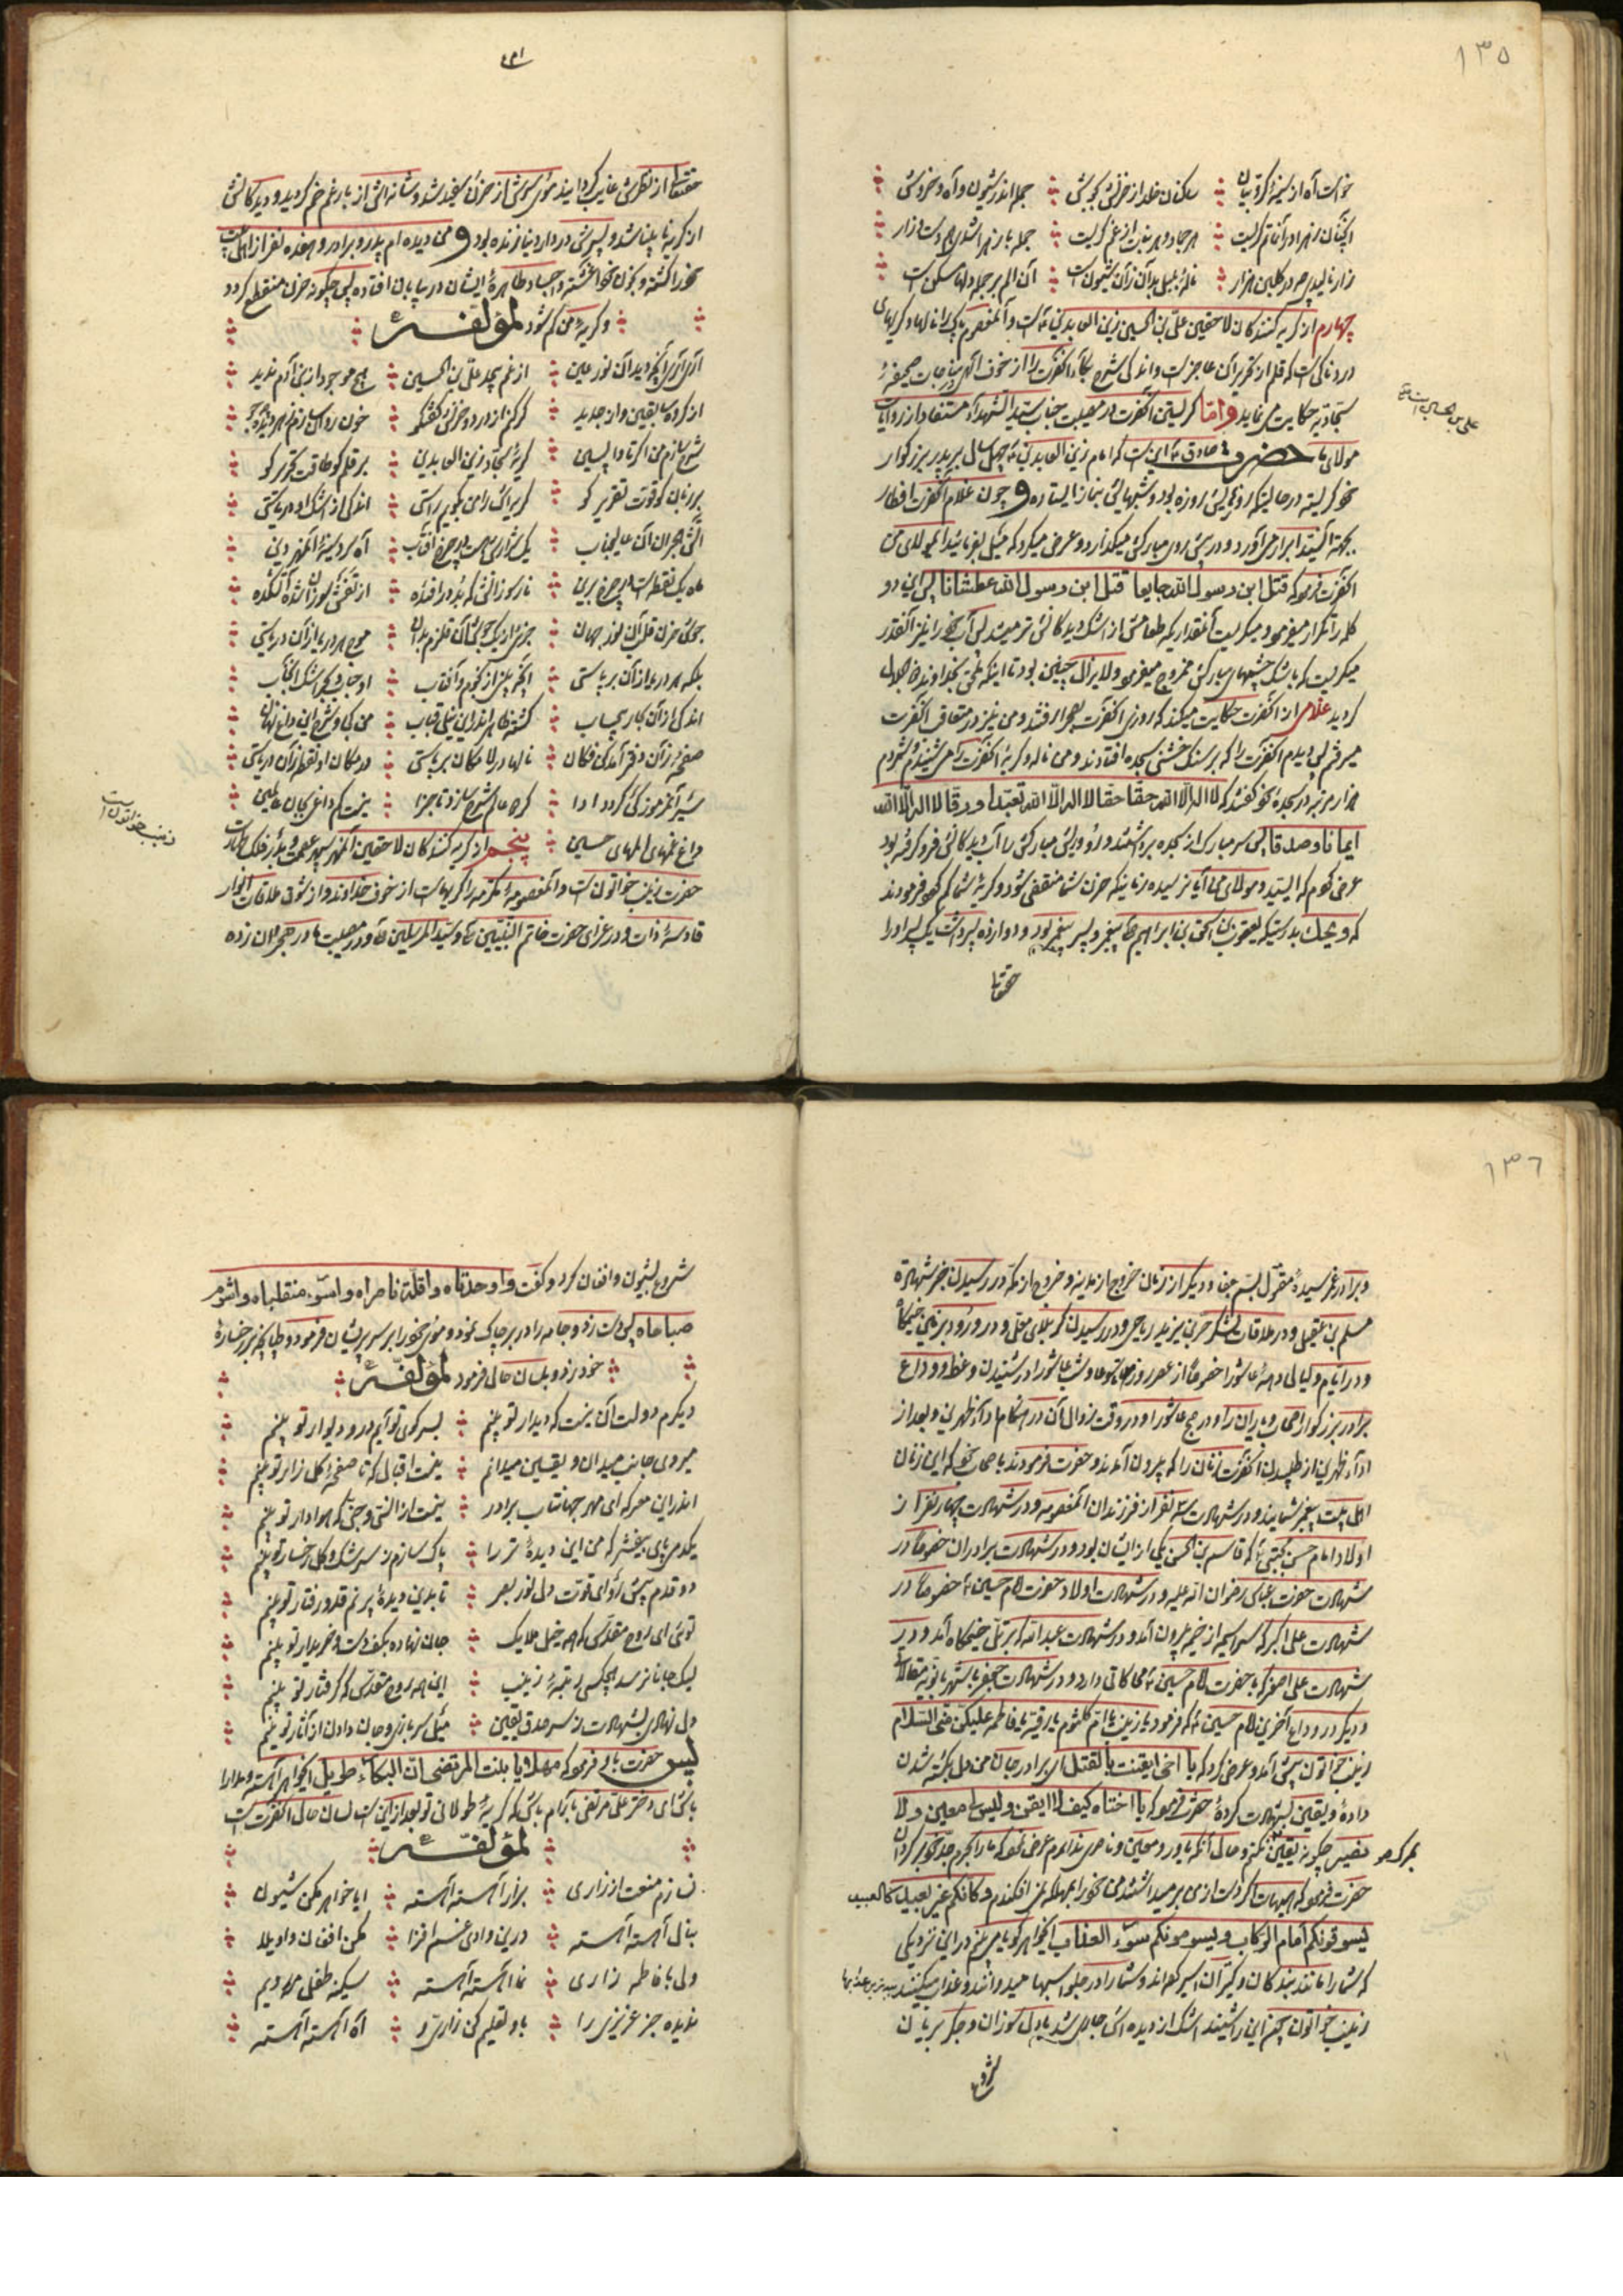 ١٣٥
خواست آه از سینهٔ کروبیان ساکنان خلد از حزنش بجوش جمله اندر شیون و آه و خروش
آنچنان زهرا در آن ماتم گریست هر جماد و هر نبات از غم گریست جمله با زهرا شدی همدست زار
زار نالیدی چه در گلبن هزار نالهٔ بلبل بدان زآن شیون است آن الم بر جمله دلها مسکن است
چهارم از گریه کنندگان لاحقین علی بن الحسین زین العابدین ع است و آنمعصوم پاک را نالها و گریهای
دردناکی است که قلم از تحریر آن عاجز است و اندکی شرح بکاء آنحضرت را از خوف الهی و مناجات صحیفهٔ
علی بن الحسین است
سجادیه حکایت می نماید و اما گریستن آنحضرت در مصیبت جناب سید الشهداء مستفاد از روایات
مولای ما حضرت صادق ع این است که امام زین العابدین ع چهل سال بر پدر بزرگوار
خود گریست در حالتیکه روزهایش روزه بود و شبهایش بنماز ایستاده و چون غلام آنحضرت افطار
بجهته آنسید ابرار می آورد و در پیش روی مبارکش میگذارد و عرض میکرد که میل بفرمائید ایمولای من
آنحضرت فرمود که قتل ابن رسول الله جایعا قتل ابن رسول الله عطشانا پس این دو
کلمه را تکرار میفرمود و میگریست آنقدر اینکه طعامش از اشک دیدگانش تر میشد پس آب را نیز آنقدر
میگریست که باشک چشمهای مبارکش ممزوج میفرمود و لایزال چنین بود تا اینکه ملحق بخداوند ذوالجلال
گردید غلامی از آنحضرت حکایت میکند که روزی آنحضرت بصحرا رفتند و من نیز در متعاقب آنحضرت
میرفتم پس دیدم آنحضرت را که بر سنگ خشنی بسجده افتادند و من ناله و گریهٔ آنحضرت را می شنیدم و شمردم
هزار مرتبه در سجدهٔ خود گفتند که لا اله الا الله حقا حقا لا اله الا الله تعبدا و رقا لا اله الا الله
ایمانا و صدقا پس سر مبارک از سجده برداشتند و رو و ریش مبارکش را آب دیدگانش فرو گرفته بود
عرض کردم که ایسید و مولای من آیا نرسیده زمانیکه حزن شما منقضی شود و گریهٔ شما کم شود فرمودند
که ویحک بدرستیکه یعقوب بن اسحق بن ابراهیم ع پیغمبر و پسر پیغمبر بود و دوازده پسر داشت یک پسر او را
حقتعا
حقتعا از نظرش غایب گردانید موی سرش از حزن سفید شد و شانه اش از بار غم خم گردید و دیدگانش
از گریه نابینا شد و پسرش در دار دنیا زنده بود و من دیده ام پدر و برادر و هفده نفر از اهل بیت
خود را کشته و بخون خود آغشته و اجساد طاهرهٔ ایشان در بیابان افتاده پس چگونه حزن منقطع گردد
و گریهٔ من کم شود لمؤلفه
آری آری آنچه دید آن نور عین از غم بیحد علی بن الحسین هیچ موجود از بنی آدم ندید
از گروه سابقین و از جدید گر کنم از درد و حزنش گفتگو خون روان سازم ز هر دیده چو جو
شرح سازم من اگر تا واپسین گریهٔ سجاد زین العابدین بر قلم کو طاقت تحریر کو
بر زبان کو قوت تقریر کو گر برایت رامی بگویم راستی اندکی از اشک او دریاستی
آتش هجران آن عالیجناب یک شراری هست در چرخ آفتاب آه سرد سینهٔ آنمهر دین
ماه یک نقطه است بر چرخ برین
جوش حزن قلب آن نور جهان موج هر دریا از آن دریاستی
بلکه هر دریا از آن بر پاستی انجم پر از نجوم و آفتاب
اندکی از آن بکار بیحساب گشته ظاهر اندر این نیلی قباب من کجا و شرح این داغ نهان
صفحه زآن دفتر آمد کن فکان نالها در لامکان بر پاستی در مکان او نقطه زآن دریاستی
شیر آنمرموز کی گردد ادا گر دو عالم شرح سازد تا جزا
داغ غمهای المهای حسین پنجم از گریه کنندگان لاحقین آنمهر سپهر عصمت و بدر فلک طهارت
زینب خواتون است
حضرت زینب خواتون است و آنمعصومهٔ مکرمه را گریهاست از خوف خداوند و از شوق ملاقات انوار
قادسهٔ ذات و در عزای حضرت خاتم النبیین ع و سید المرسلین ص و در مصیبت مادر هجران زده
١٣٦
و برادر غم رسیدهٔ مقتول بسم جفا و دیگر از زمان خروج از مدینه و خروج از مکه و در رسیدن خبر شهادت
مسلم بن عقیل و در ملاقات لشکر حر بن یزید ریاحی و در رسیدن کربلای معلی و در ورود بزمین خیمگاه
و در ایام و لیالی دههٔ عاشورا خصوصا از عصر روز تاسوعا و شب عاشورا در شنیدن وعظ و وداع
برادر بزرگوار اصحاب و یاران را و در صبح عاشورا و در وقت زوال آن در هنگام اداء ظهرین و بعد از
اداء ظهرین از طلبیدن آنحضرت زنان را که بیرون آمدند و حضرت فرمودند باصحاب خود که این زنان
اهل بیت پیغمبر شمایند و در شهادت سه نفر از فرزندان آنمعصومه و در شهادت چهار نفر از
اولاد امام حسن مجتبی ع که قاسم بن الحسن یکی از ایشان بود و در شهادت برادران خصوصا در
شهادت حضرت عباس رضوان الله علیه و در شهادت اولاد حضرت امام حسین ع خصوصا در
شهادت علی اکبر که سراسیمه از خیمه بیرون آمد و در شهادت عبدالله که بر تل خیمگاه آمد و در
شهادت علی اصغر که با حضرت امام حسین ع محاکاتی دارد و در شهادت
و دیگر در وداع آخرین امام حسین ع که فرمود یا زینب یا ام کلثوم یا رقیه یا فاطمه علیکن منی السلام
زینب خواتون پیش آمد و عرض کرد که یا اخی ایقنت بالقتل ای برادر جان من دل بکشته شدن
دادهٔ و یقین بشهادت کردهٔ حضرت فرمود که یا اختاه کیف لا ایقن و لیس لی معین و لا
نصیر چگونه یقین نکنم و حال آنکه یاور و معین و ناصری ندارم عرض نمود که ما را بحرم جد خود برگردان
حضرت فرمود که هیهات اگر دست از من برمیداشتند من خود را بمهلکه نمی افکندم و کانکم غیر بعید کالعبید
یسوقونکم امام الرکاب و یسومونکم سوء العذاب ایخواهر گویا می بینم در این نزدیکی
که شما را مانند بندگان و کنیزان اسیر کرده اند و شما را در جلو اسبها میدوانند و عذاب میکنند
زینب خواتون چون این را شنید اشک از دیده اش جاری شد با دل سوزان و جگر بریان
شروع
شروع بشیون و افغان کرد و گفت وا وحدتاه وا قلة ناصراه وا سوء منقلباه وا شوم
صباحاه پس دست زد و جامه را در بر چاک نمود و موی خود را بر سر پریشان فرمود و طپانچه بر رخسارهٔ
خود بزد و بلسان حال فرمود لمؤلفه
دیگرم دولت آن نیست که دیدار تو بینم بسر کوی تو آیم در و دیوار تو بینم
میروی جانب میدان و یقین میدانم نیست اقبال که تا صفحهٔ گلزار تو بینم
اندر این معرکه ای مهر جهانتاب برادر نیست از انس و جنی که هوادار تو بینم
پاک سازم ز سرشک و گل رخسار تو بینم
دو قدم پیش تر آ ای قوت دل نور بصر تا بدین دیدهٔ پر نم قد و رفتار تو بینم
توئی ای روح مقدس که همه خیل ملایک جان نهاده بکف دست و خریدار تو بینم
لیک جانا نرسد هیچکس برتبهٔ زینب این همه روح مقدس که گرفتار تو بینم
دل نهادی بشهادت ز سر صدق و یقین میل سربازی و جان دادن از آثار تو بینم
پس حضرت باو فرمود که مهلا یا بنت المرتضی ان البکاء طویل ایخواهر آهسته و مدارا
باش ای دختر علی مرتضی آرام باش که گریهٔ طولانی تو بعد از این است لسان حال آنحضرت است
لمؤلفه
نسازم منعت از زاری بزار آهسته آهسته ایا خواهر مکن شیون
بنال آهسته آهسته درین وادی غم افزا مکن افغان و اویلا
ولی با فاطمه زاری نما آهسته آهسته سکینه طفلی
ندیده جز عزیزی را باو تعلیم کن زاری و آه آهسته آهسته